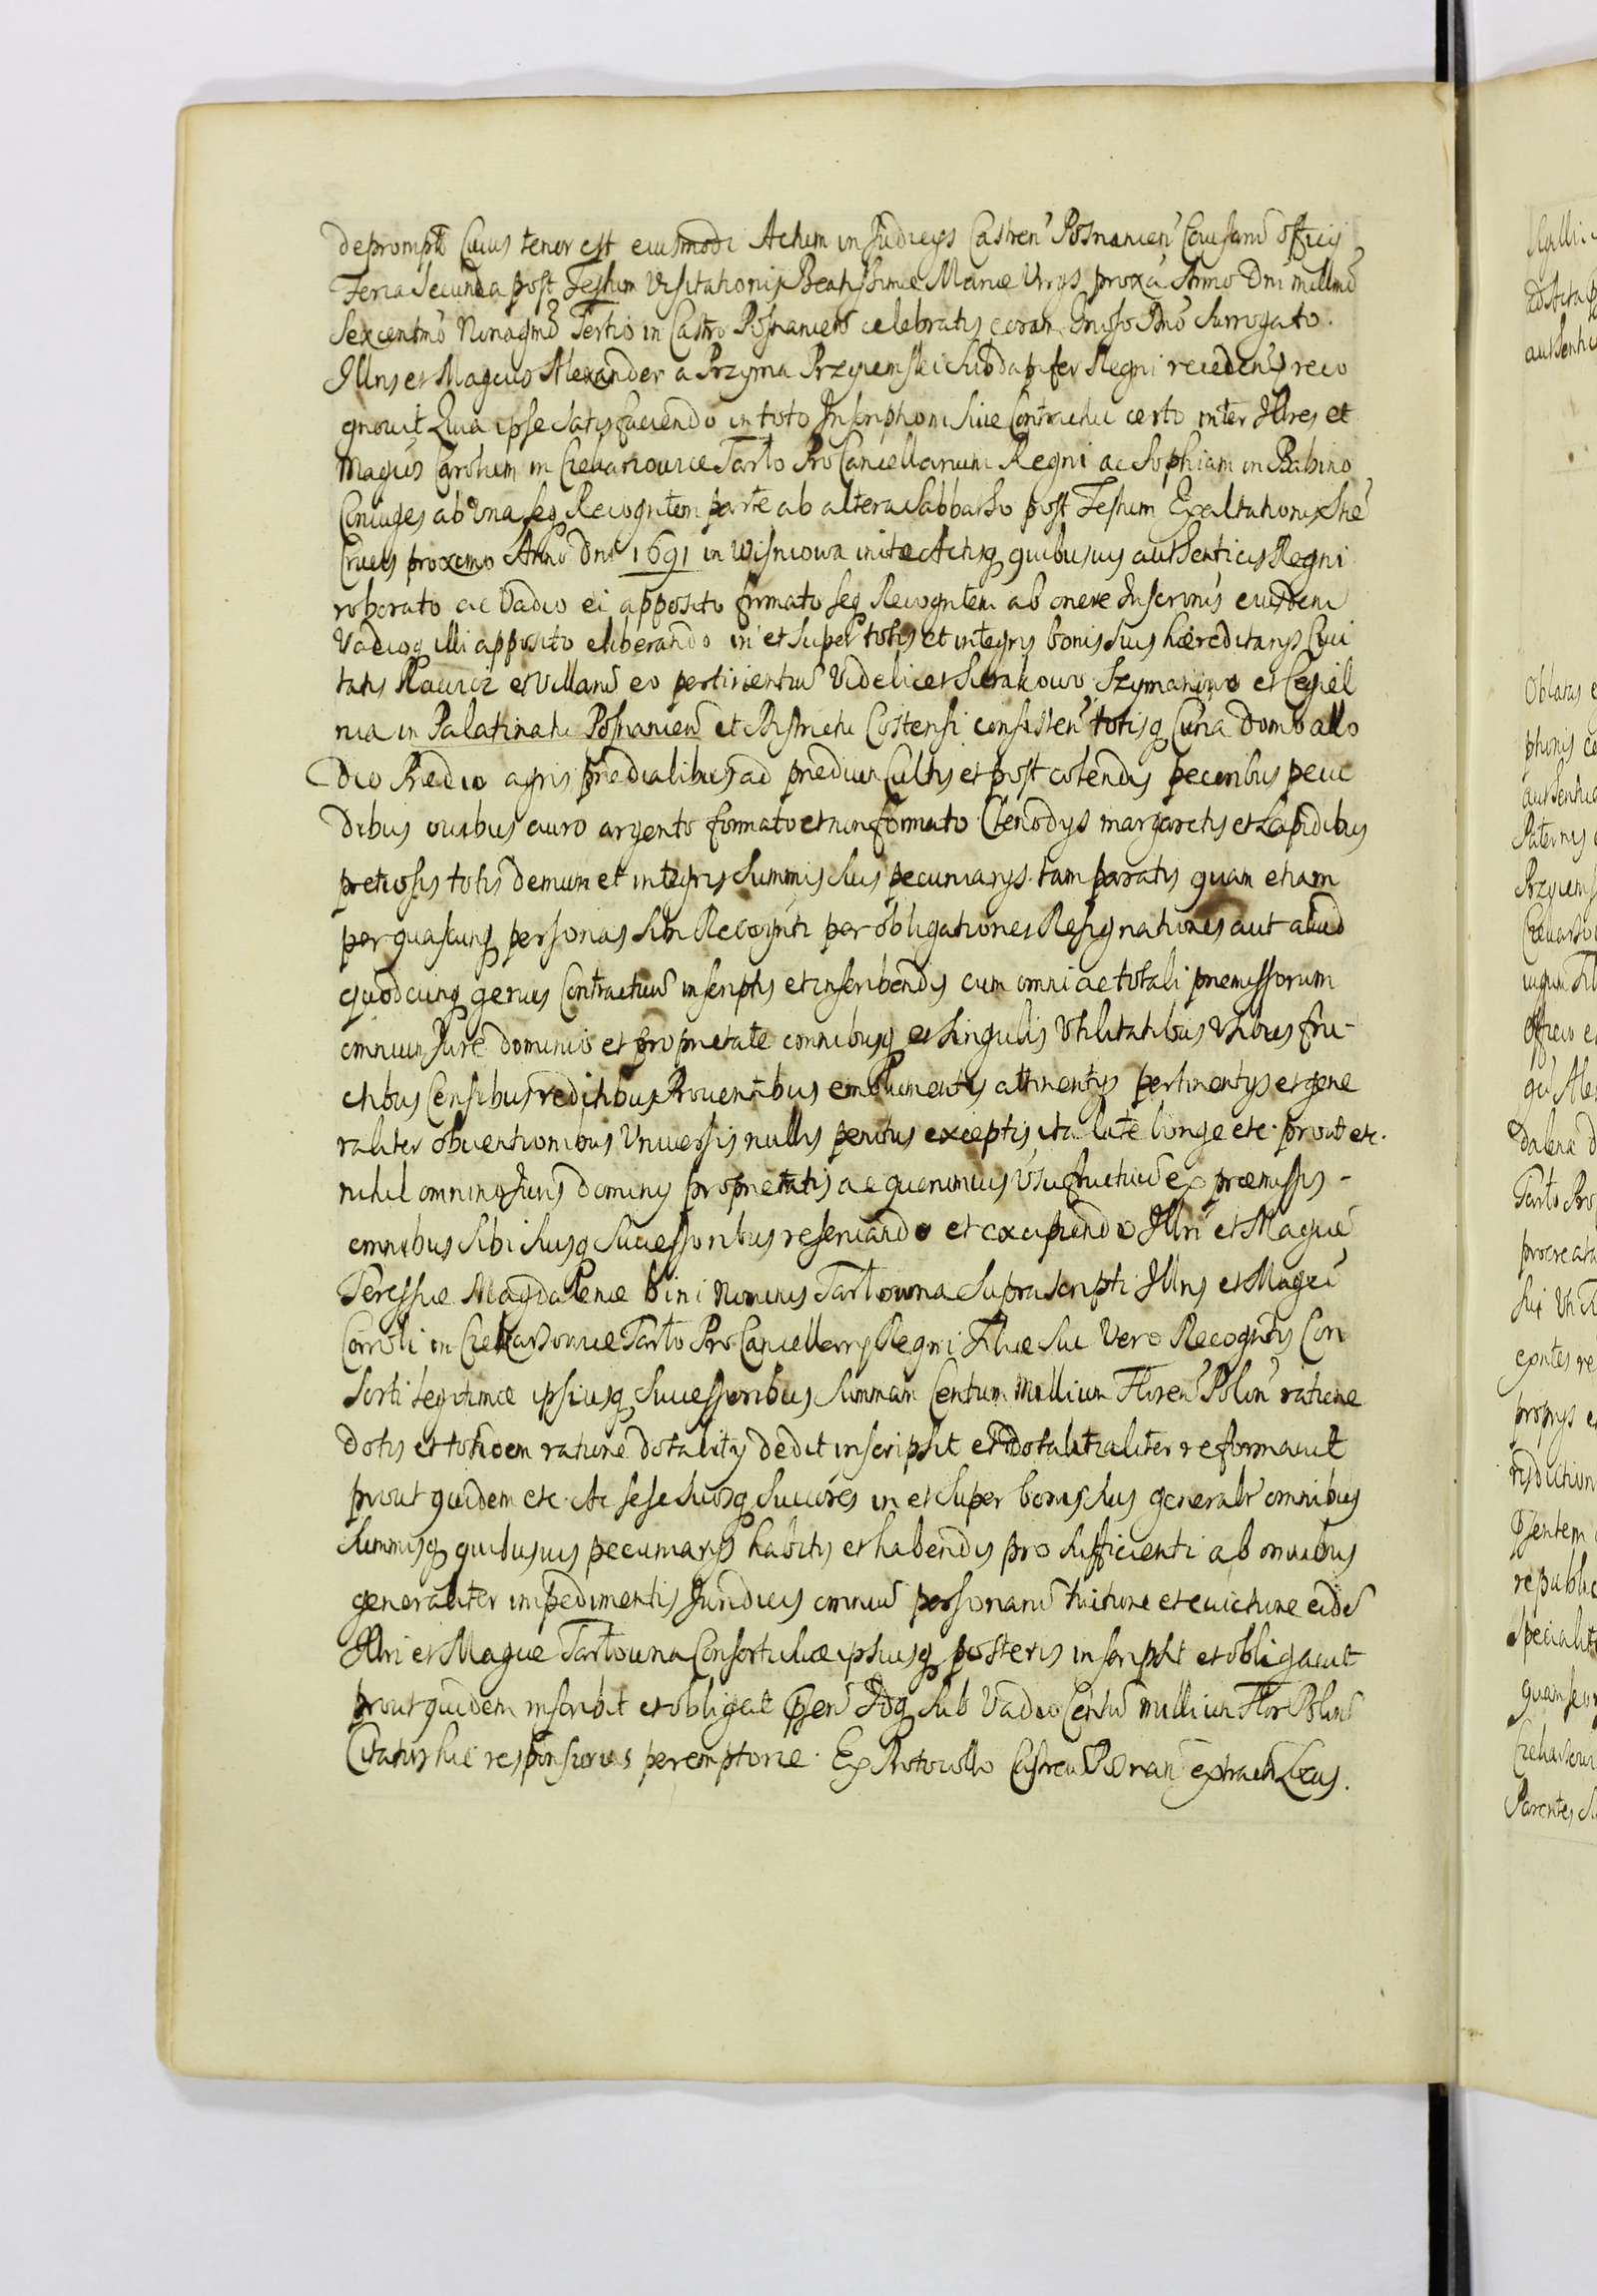 deprompt Cuius tenor est eiusmodi Actum in Judicys Castren Posnanien Causaru officy
Feria Secunda post Festum Visitationis Beatissimæ Mariæ Vrgs proxa Anno Dni millmo
Sexcentmo Nonagmo Tertio in Castro Posnanien celebratis coram Gnoso Surrogato.
Illris et Magcus Alexander a Przyma Przyiemski Subdapifer Regni recedens reco
gnouit Quia ipse Satisfaciendo in toto Inscriptioni Siue Contractui certo inter Illres et
Magcus Carolum in Czekarzowice Tarło ProCancellarium Regni ac Sophiam in Babino
Coniuges ab Vna Seq Recogntem parte ab altera Sabbatho post Festum Exaltationis Stæ
Crucis proximo Anno Dni 1691 in Wisniowa inito Actisq quibusuis authenticis Regni
roborato ac Vadio ei apposito firmato Seq Recogntem ab onere Inscronis eiusdem
Vadioq illi apposito eliberando in et Super totis et integris bonis Suis hæreditarys Ciui
tatis Rawicz et Villaru eo pertinentiu Videlicet Sierakowo Szymanowo et Cegiel
nia in Palatinatu Posnanien et Districtu Costensi consisten totisq Curia Domo allo
dio Prædio agris prædialibus ad prædium Cultis et post colendis pecoribus pecu
dibus ouibus auro argento formato et non formato Clenodys margaretis et Lapidibus
pretiosis totis demum et integris Summis Suis pecuniarys tam paratis quam etiam
per quascunq personas Sibi Recognti per obligationes Resignationes aut aliud
quodcunq genus Contractuu inscriptis et inscribendis cum omni ac totali præmissorum
omnium Jure dominio et proprietate omnibusq et Singulis Vtilitatibus Vsibus fru-
ctibus Censibus redditibus Prouentibus emolumentis attinentys pertinentys et gene
raliter obuentionibus Vniuersis nullis penitus exceptis ita late longe etc. prout etc.
nihil omnino Juris dominy proprietatis ac quorumuis Vsufructuu ex præmissis -
omnibus Sibi Suisq Successoribus reseruando et excipiendo Illri et Magcæ
Teressiæ Magdalenæ bini Nominis Tarłowna Suprascripti Illris et Magci
Carroli in Czekarzowice Tarło ProCancellarry Regni Filiæ Suæ Vero Recogntis Con
Sorti legitimæ ipsiusq Successoribus Summam Centum Millium Floren Polon ratione
Dotis et totidem ratione dotality dedit inscripsit et dotalitialiter reformauit
prout quidem etc. Ac sese Suosq Succores in et Super bonis Suis generalr omnibus
Summisq quibusuis pecuniarys habitis et habendis pro Sufficienti ab omnibus
generaliter impedimentis Juridicis omniu personaru tuitione et euictione eide
Illri et Magcæ Tarłowna Consorti Suæ ipsiusq posteris inscripsit et obligauit
prout quidem inscribit et obligat præsen Idq Sub Vadio Centu millium Flor Polon
Citatus hic responsurus peremptorie. Ex Protocollo Castren Posnan extractu